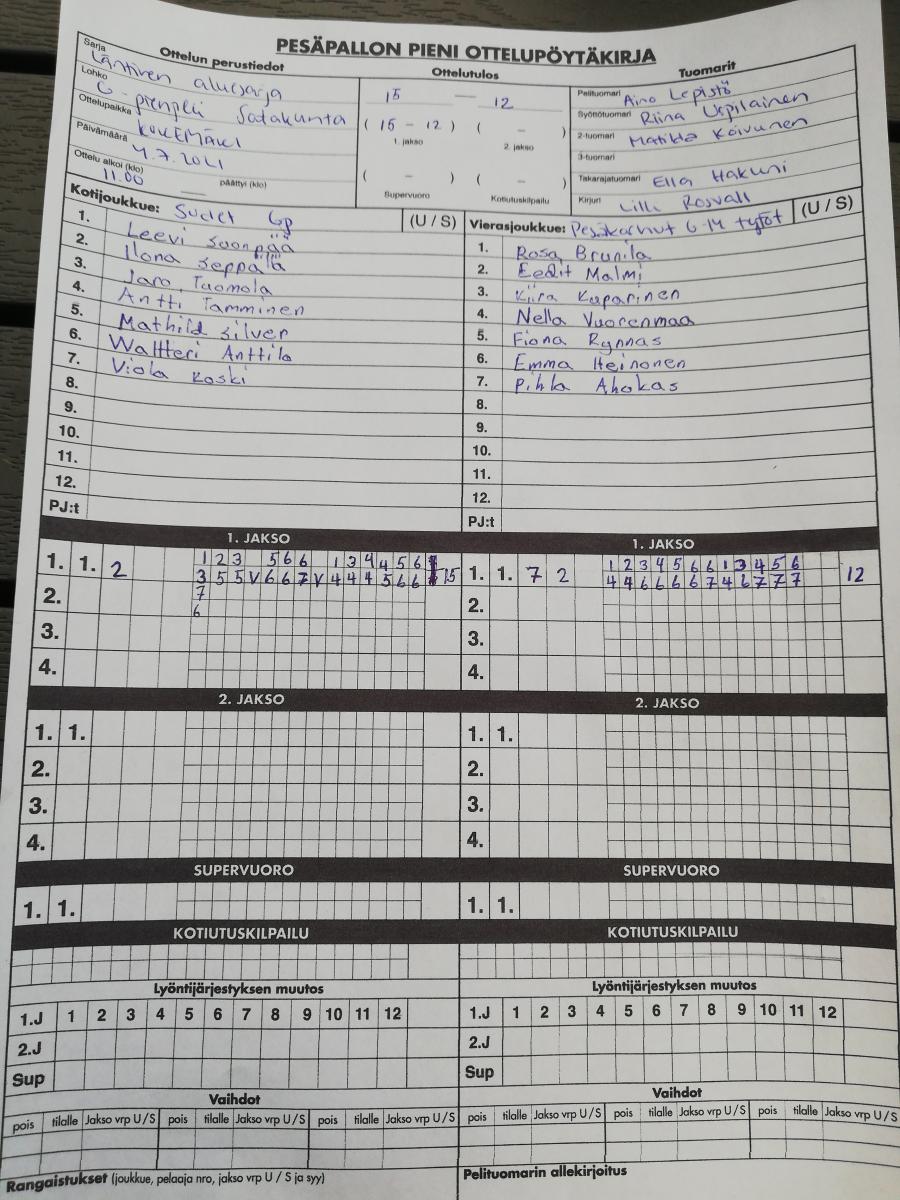 PESÄPALLON PIENI OTTELUPÖYTÄKIRJA
Ottelun perustiedot
Sarja Läntinen aluesarja
Lohko G-pienpeli Satakunta
Ottelupaikka KOKEMÄKI
Päivämäärä 4.7.2021
Ottelu alkoi (klo) 11.00 päättyi (klo)
Ottelutulos
15 — 12
( 15 - 12 ) ( - )
1. jakso 2. jakso
( - ) ( - )
Supervuoro Kotiutuskilpailu
Tuomarit
Pelituomari Aino Lepistö
Syöttötuomari Riina Urpilainen
2-tuomari Matilda Koivunen
3-tuomari
Takarajatuomari Ella Hakuni
Kirjuri Lilli Rosvall
Kotijoukkue: Sudet Gp (U / S)
1. Leevi Suonpää
2. Ilona Seppälä
3. Jaro Tuomola
4. Antti Tamminen
5. Mathild Silver
6. Waltteri Anttila
7. Viola Koski
8.
9.
10.
11.
12.
PJ:t
Vierasjoukkue: Pesäkarhut G-14 tytöt (U / S)
1. Rosa Brunila
2. Eedit Malmi
3. Kiira Kuparinen
4. Nella Vuorenmaa
5. Fiona Rynnäs
6. Emma Heinonen
7. Pihla Ahokas
8.
9.
10.
11.
12.
PJ:t
1. JAKSO
1. 1. 2
1 2 3 5 6 6 1 3 4 4 5 6
3 5 5 V 6 6 7 V 4 4 4 5 6 6 15
7
6
2.
3.
4.
1. JAKSO
1. 1. 7 2
1 2 3 4 5 6 6 1 3 4 5 6
4 4 6 6 6 6 7 4 6 7 7 7 12
2.
3.
4.
2. JAKSO
1. 1.
2.
3.
4.
2. JAKSO
1. 1.
2.
3.
4.
SUPERVUORO
1. 1.
SUPERVUORO
1. 1.
KOTIUTUSKILPAILU
KOTIUTUSKILPAILU
Lyöntijärjestyksen muutos
1.J 1 2 3 4 5 6 7 8 9 10 11 12
2.J
Sup
Lyöntijärjestyksen muutos
1.J 1 2 3 4 5 6 7 8 9 10 11 12
2.J
Sup
Vaihdot
pois tilalle Jakso vrp U / S pois tilalle Jakso vrp U / S pois tilalle Jakso vrp U / S
Vaihdot
pois tilalle Jakso vrp U / S pois tilalle Jakso vrp U / S pois tilalle Jakso vrp U / S
Rangaistukset (joukkue, pelaaja nro, jakso vrp U / S ja syy)
Pelituomarin allekirjoitus